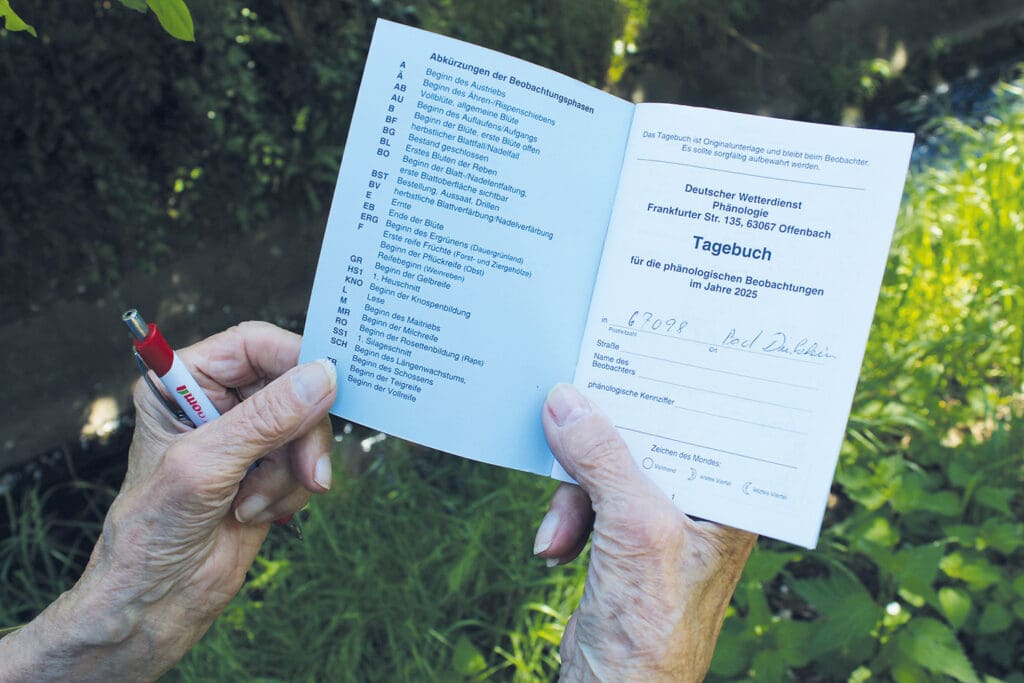 Abkürzungen der Beobachtungsphasen
A Beginn des Austriebs
Ä Beginn des Ähren-/Rispenschiebens
AB Vollblüte, allgemeine Blüte
AU Beginn des Auflaufens/Aufgangs
B Beginn der Blüte, erste Blüte offen
BF herbstlicher Blattfall/Nadelfall
BG Bestand geschlossen
BL Erstes Bluten der Reben
BO Beginn der Blatt-/Nadelentfaltung,
erste Blattoberfläche sichtbar
BST Bestellung, Aussaat, Drillen
BV herbstliche Blattverfärbung/Nadelverfärbung
E Ernte
EB Ende der Blüte
ERG Beginn des Ergrünens (Dauergrünland)
F Erste reife Früchte (Forst- und Ziergehölze)
Beginn der Pflückreife (Obst)
Reifebeginn (Weinreben)
GR Beginn der Gelbreife
HS1 1. Heuschnitt
KNO Beginn der Knospenbildung
L Lese
M Beginn des Maitriebs
MR Beginn der Milchreife
RO Beginn der Rosettenbildung (Raps)
SS1 1. Silageschnitt
SCH Beginn des Längenwachstums,
Beginn des Schossens
TR Beginn der Teigreife
Beginn der Vollreife
Das Tagebuch ist Originalunterlage und bleibt beim Beobachter.
Es sollte sorgfältig aufbewahrt werden.
Deutscher Wetterdienst
Phänologie
Frankfurter Str. 135, 63067 Offenbach
Tagebuch
für die phänologischen Beobachtungen
im Jahre 2025
in 67098 Bad Dürkheim
Postleitzahl Ort
Straße
Name des
Beobachters
phänologische Kennziffer
Zeichen des Mondes:
Vollmond erstes Viertel letztes Viertel
1